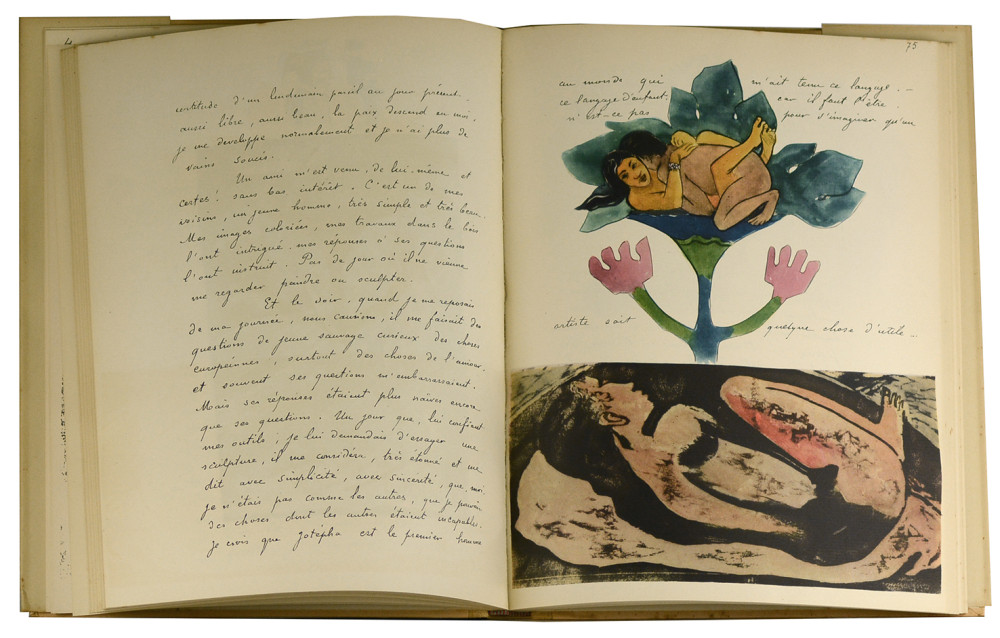 certitude d'un lendemain pareil au jour présent
aussi libre, aussi beau, la paix descend en moi,
je me développe normalement et je n'ai plus de
vains soucis.
Un ami m'est venu, de lui-même et
certes! sans bas intérêt. C'est un de mes
voisins, un jeune homme, très simple et très beau.
Mes images coloriées, mes travaux dans le bois
l'ont intrigué mes réponses à ses questions
l'ont instruit. Pas de jour où il ne vienne
me regarder peindre ou sculpter.
Et le soir, quand je me reposais
de ma journée, nous causions, il me faisait des
questions de jeune sauvage curieux des choses
européennes, surtout des choses de l'amour.
et souvent ses questions m'embarrassaient.
Mais ses réponses étaient plus naïves encore
que ses questions. Un jour que, lui confiant
mes outils, je lui demandais d'essayer une
sculpture, il me considéra, très étonné et me
dit avec simplicité, avec sincérité, que, moi
je n'étais pas comme les autres, que je pouvais
des choses dont les autres étaient incapables.
Je crois que Jotépha est le premier homme
75
au monde qui m'ait tenu ce langage. –
ce langage d'enfant: car il faut l'être
n'est-ce pas pour s'imaginer qu'un
artiste soit quelque chose d'utile –